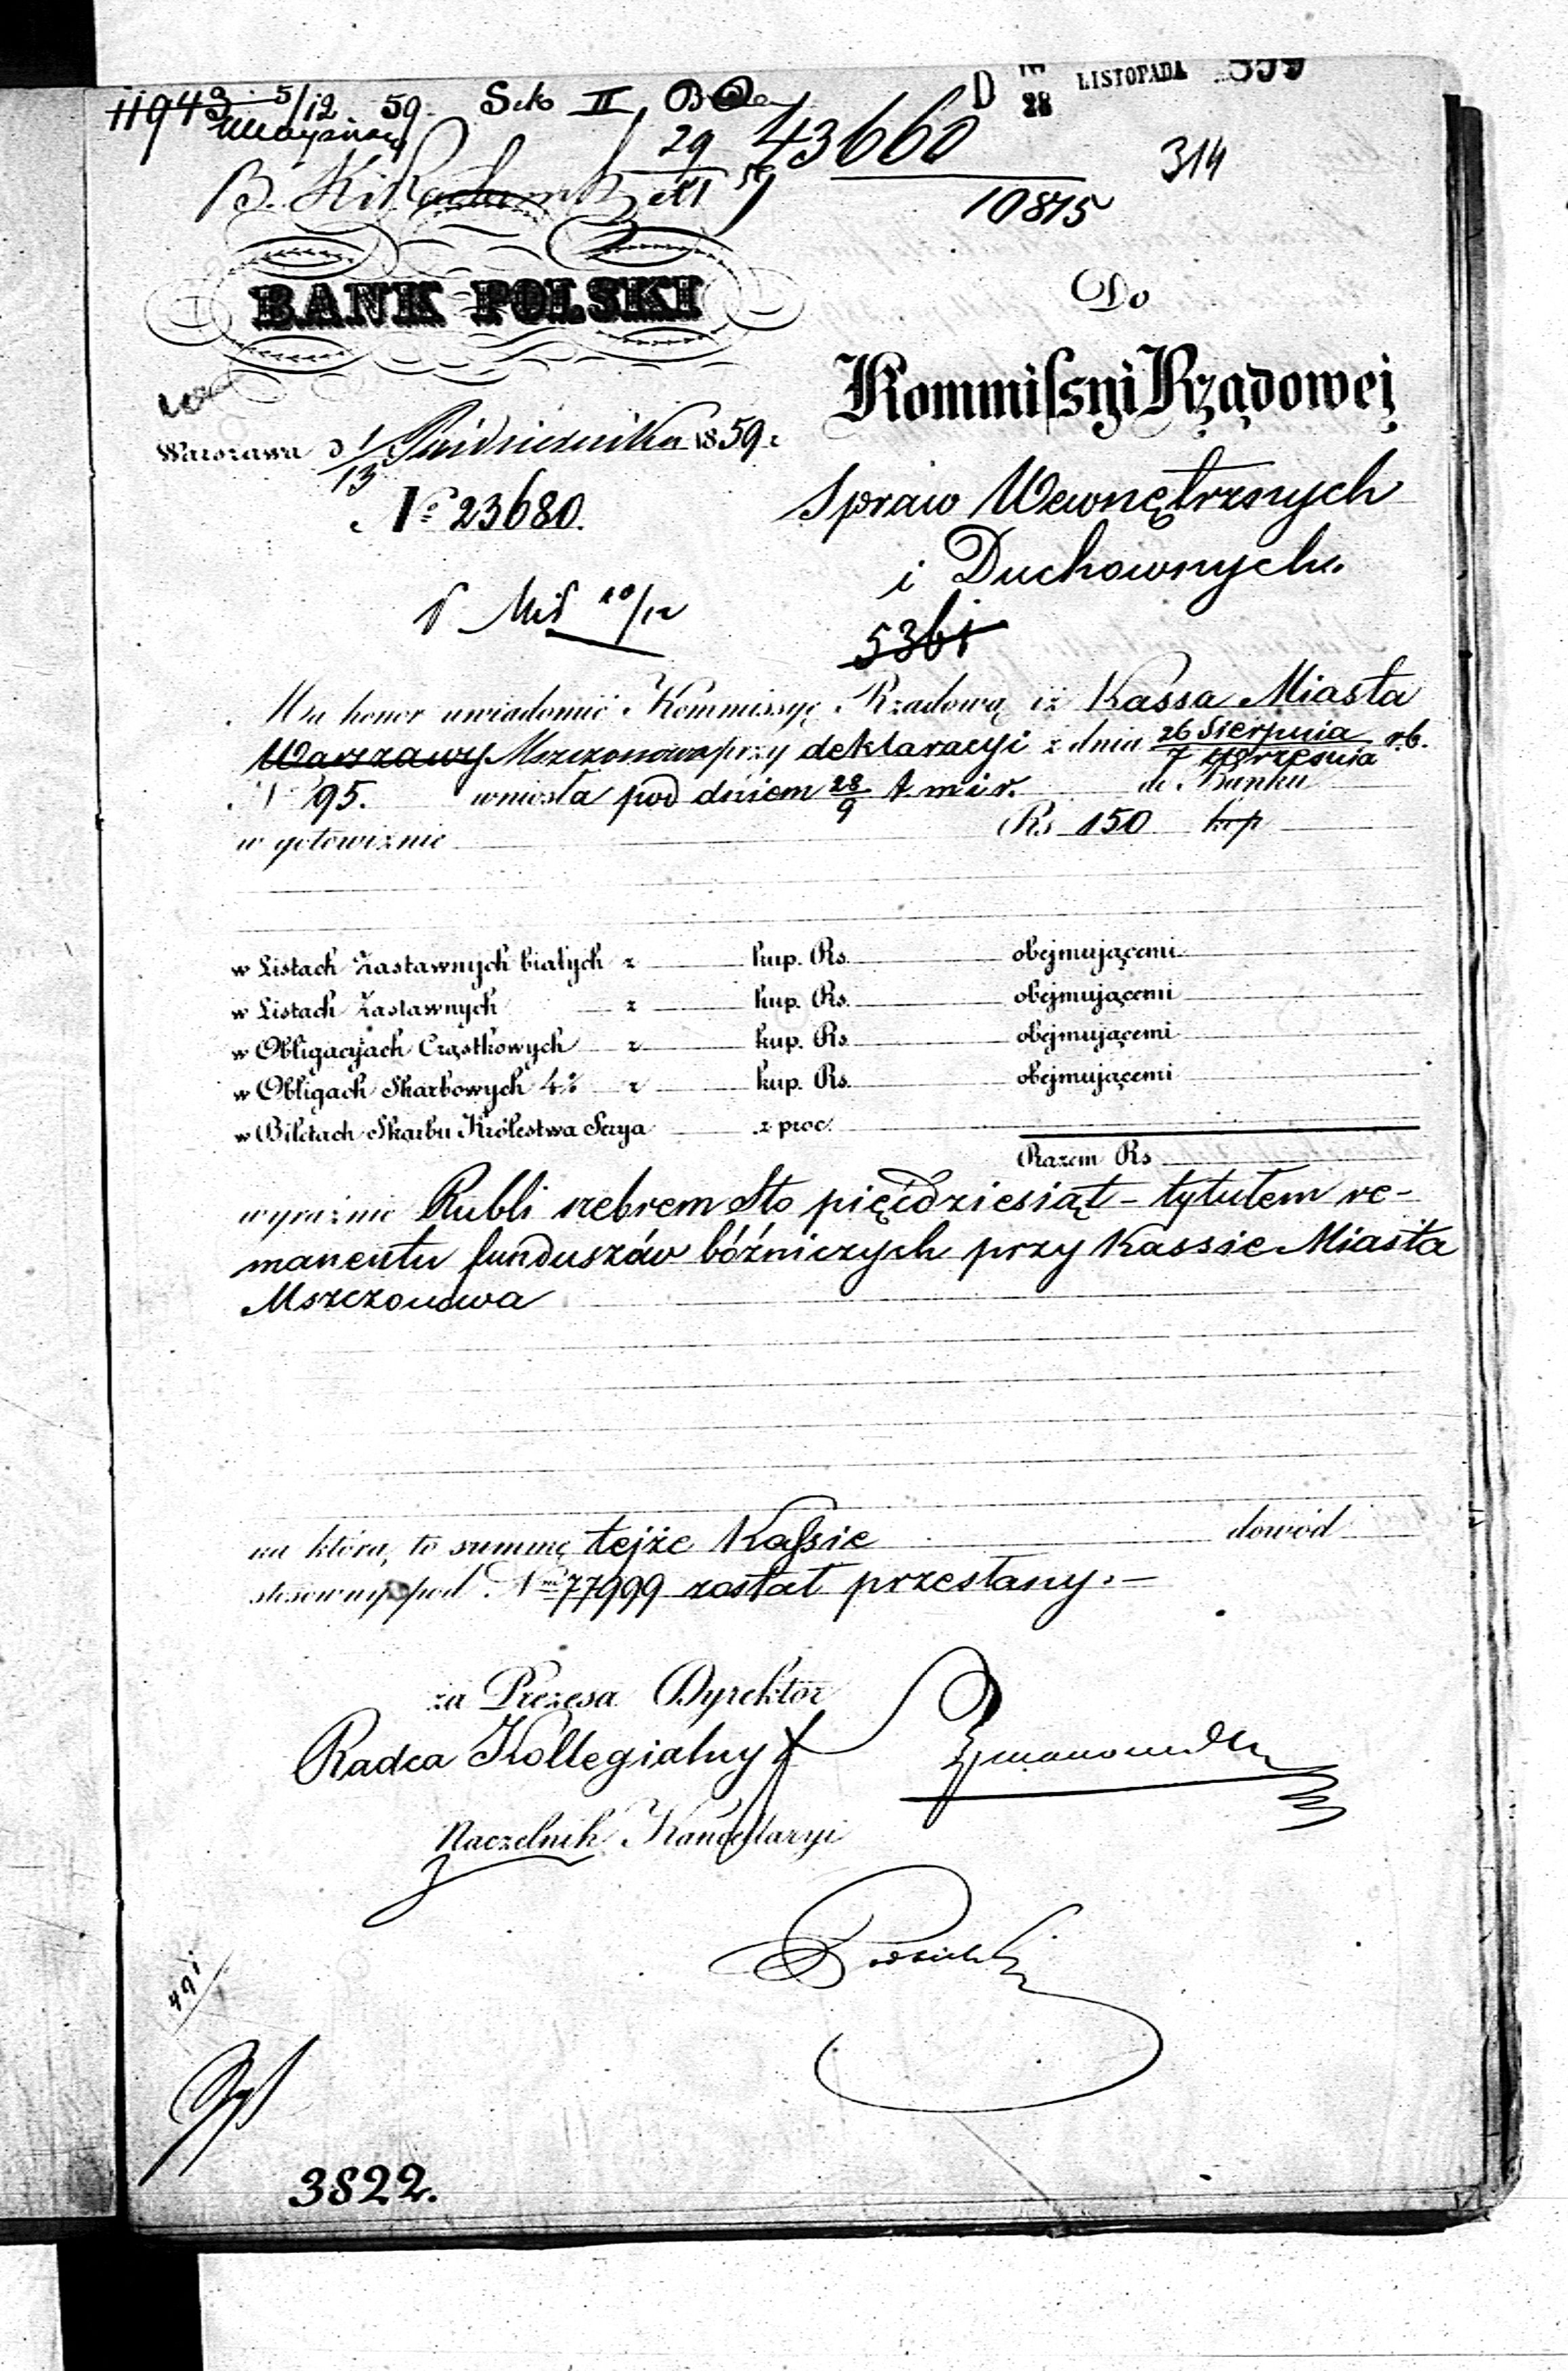 11943 5/12 59. Sek II
29 43660 D 28 LISTOPADA 859
XI 59 10875 314
BANK POLSKI
Do
Kommissyi Rządowej
Warszawa d 1/13 Października 1859 r.
Spraw Wewnętrznych
No 23680.
i Duchownych.
10/12
5361
Ma honor uwiadomić Kommissyę Rządową iż Kassa Miasta
Warszawy Mszczonowa przy deklaracyi z dnia 26 Sierpnia / 7 Września r.b.
N 95. wniosła pod dniem 28/9 t. m i r. do Banku
w gotowiznie Rs 150 kop
w Listach Zastawnych białych z kup. Rs. obejmującemi
w Listach Zastawnych z kup. Rs. obejmującemi
w Obligacyjach Cząstkowych z kup. Rs. obejmującemi
w Obligach Skarbowych 4% z kup. Rs. obejmującemi
w Biletach Skarbu Królestwa Serya z proc.
Razem Rs
wyraźnie Rubli srebrem Sto pięćdziesiąt – tytułem re-
manentu funduszów bóżniczych przy Kassie Miasta
Mszczonowa
na którą to summę tejże Kassie dowód
stosowny pod Nm 77999 został przesłany. –
za Prezesa Dyrektor
Radca Kollegialny
Naczelnik Kancellaryi
491
3822.